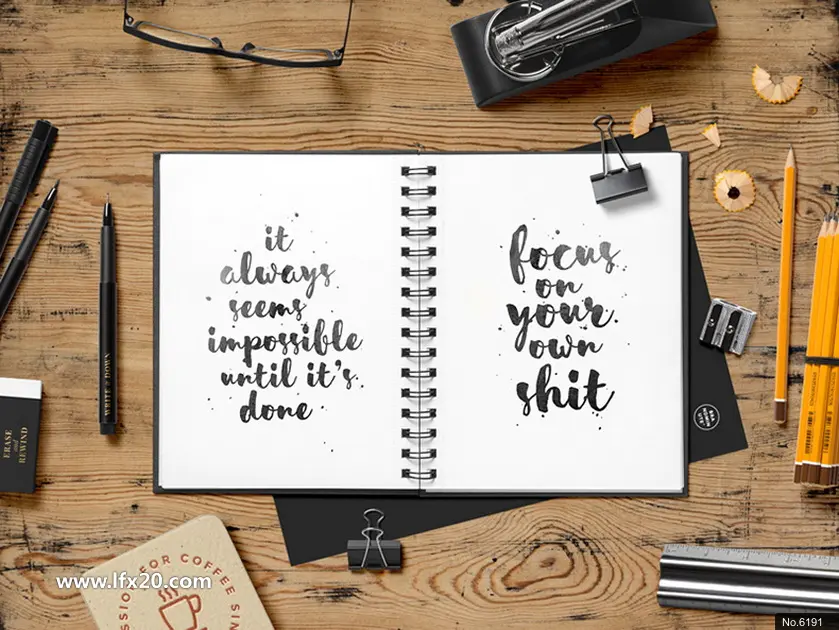 it
always
seems
impossible
until it's
done
focus
on
your
own
shit
WRITE & DOWN
ERASE
and
REWIND
SSION FOR COFFEE SIN
www.lfx20.com
No.6191